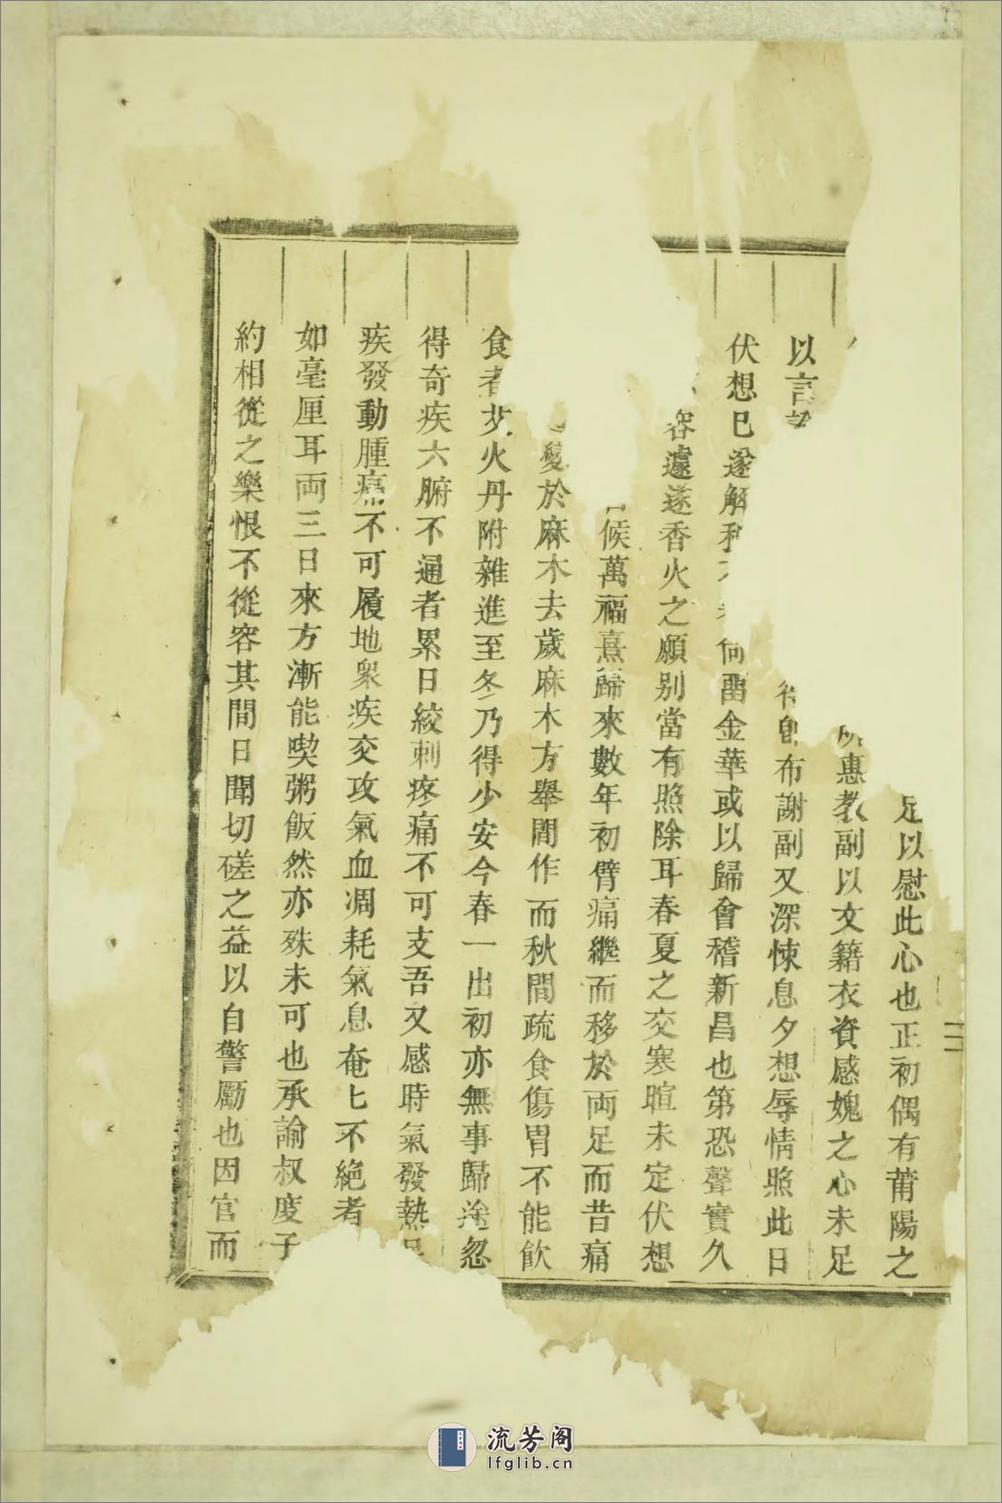 足以慰此心也正初偶有莆陽之
惠教副以文籍衣資感媿之心未足
以言 布謝副又深悚息夕想辱情照此日
伏想已遂解 何留金華或以歸會稽新昌也第恐聲實久
容遽遂香火之願别當有照除耳春夏之交寒暄未定伏想
候萬福熹歸來數年初臂痛繼而移於両足而昔痛
變於麻木去歲麻木方舉間作而秋間疏食傷胃不能飲
食者 火丹附雜進至冬乃得少安今春一出初亦無事歸途忽
得奇疾六腑不通者累日絞刺疼痛不可支吾又感時氣發熱
疾發動腫痛不可履地衆疾交攻氣血凋耗氣息奄匕不絶者
如毫厘耳両三日來方漸能喫粥飯然亦殊未可也承諭叔度子
約相從之樂恨不從容其間日聞切磋之益以自警勵也因官而
流芳阁
lfglib.cn